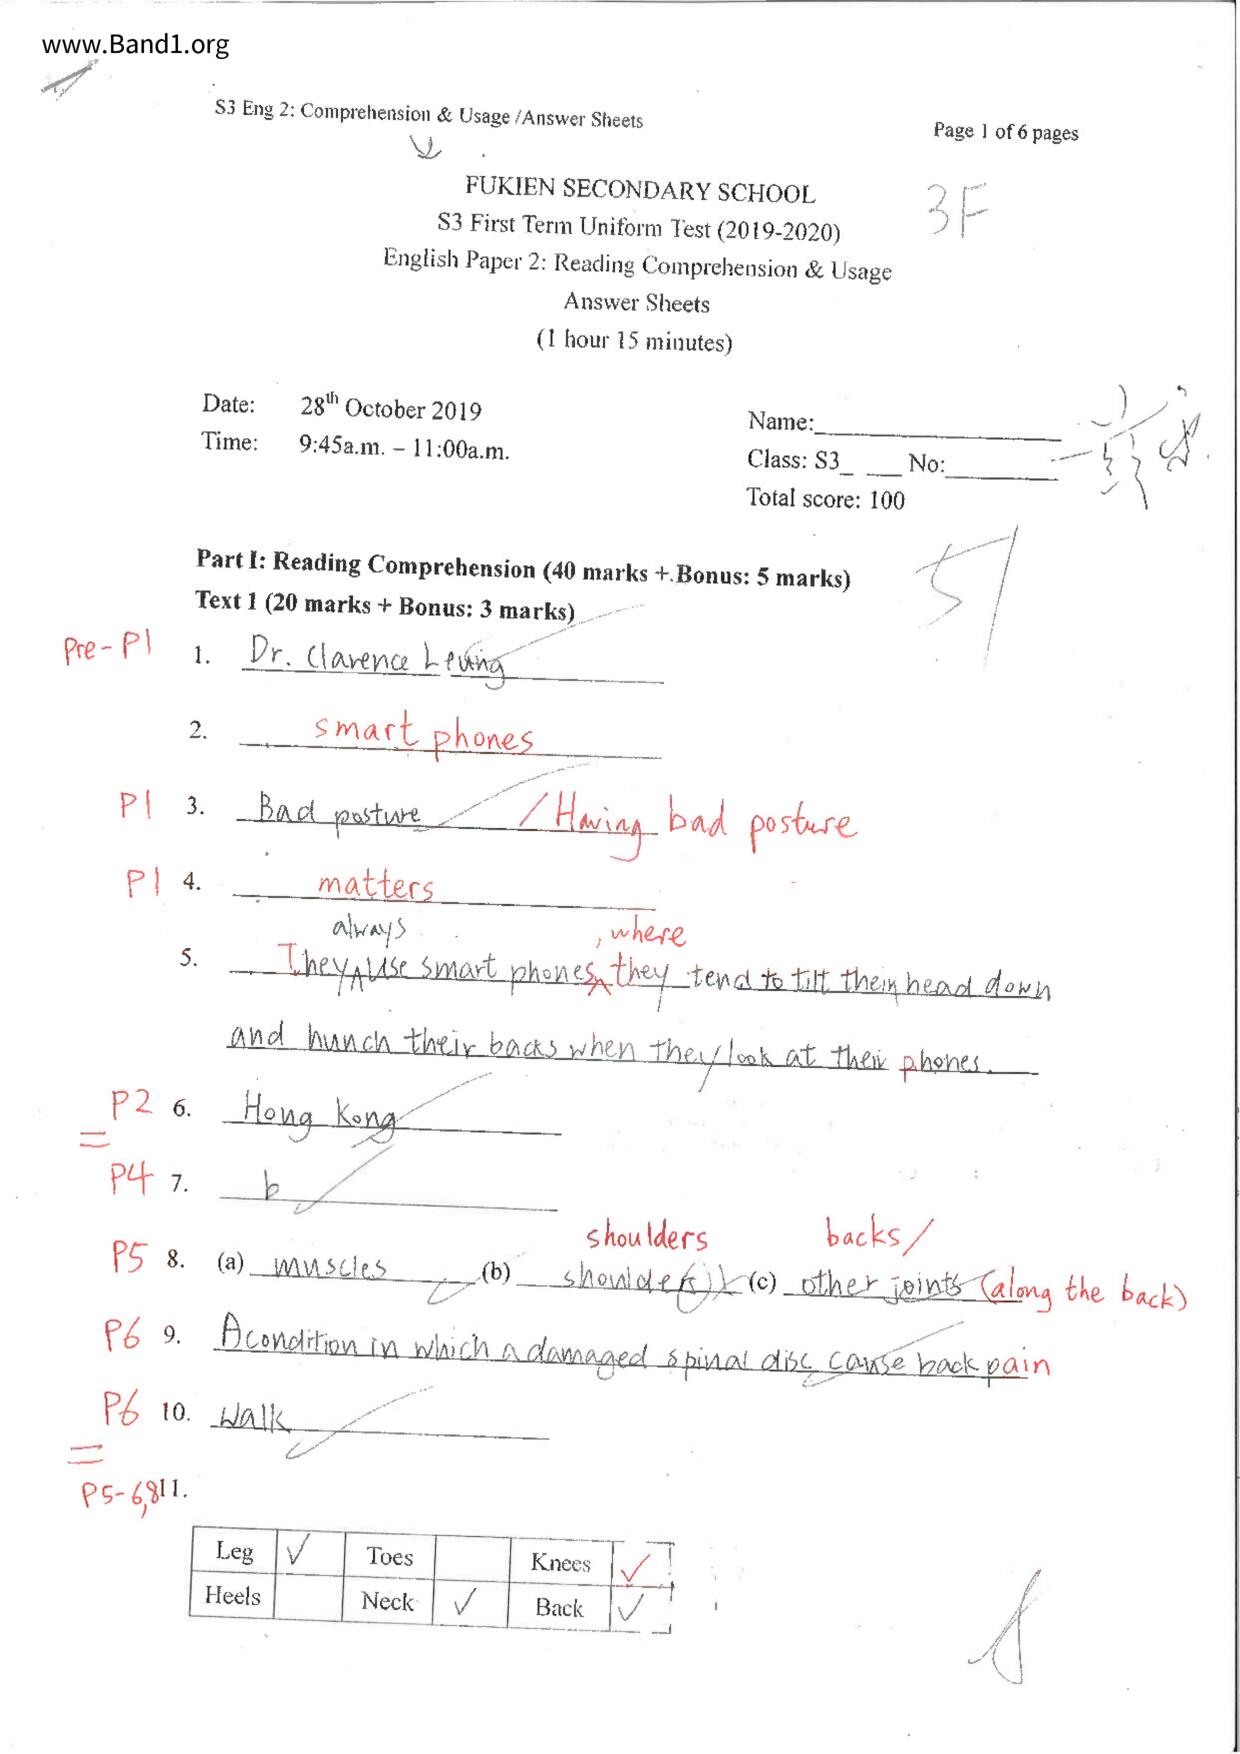 www.Band1.org
S3 Eng 2: Comprehension & Usage /Answer Sheets
Page 1 of 6 pages
FUKIEN SECONDARY SCHOOL
3F
S3 First Term Uniform Test (2019-2020)
English Paper 2: Reading Comprehension & Usage
Answer Sheets
(1 hour 15 minutes)
Date: 28th October 2019
Name:
Time: 9:45a.m. – 11:00a.m.
Class: S3_ ___ No:
Total score: 100
Part I: Reading Comprehension (40 marks + Bonus: 5 marks)
Text 1 (20 marks + Bonus: 3 marks)
Pre-P1 1. Dr. Clarence Leung
2. smart phones
P1 3. Bad posture / Having bad posture
P1 4. matters
always , where
5. They use smart phones they tend to tilt their head down
and hunch their backs when they look at their phones.
P2 6. Hong Kong
P4 7. b
shoulders backs/
P5 8. (a) muscles (b) shoulder(s) (c) other joints (along the back)
P6 9. A condition in which a damaged spinal disc cause back pain
P6 10. walk
P5-6,8 11.
Leg ✓ Toes Knees ✓
Heels Neck ✓ Back ✓